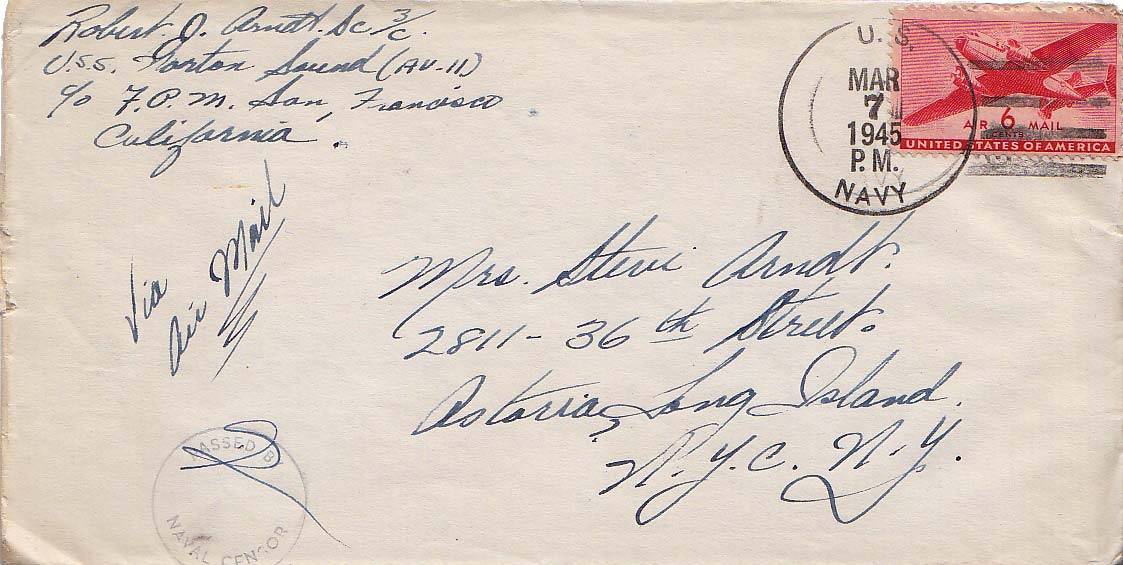 Robert J. Arndt. Sc 3/c.
U.S.S. Norton Sound (AV-11)
c/o F.P.M. San Francisco
California.
U. S.
MAR
7
1945
P.M.
NAVY
AIR 6 MAIL
CENTS
UNITED STATES OF AMERICA
Via
Air Mail
Mrs. Steve Arndt.
2811-36th Street.
Astoria, Long Island.
N.Y.C. N.Y.
PASSED BY
NAVAL CENSOR